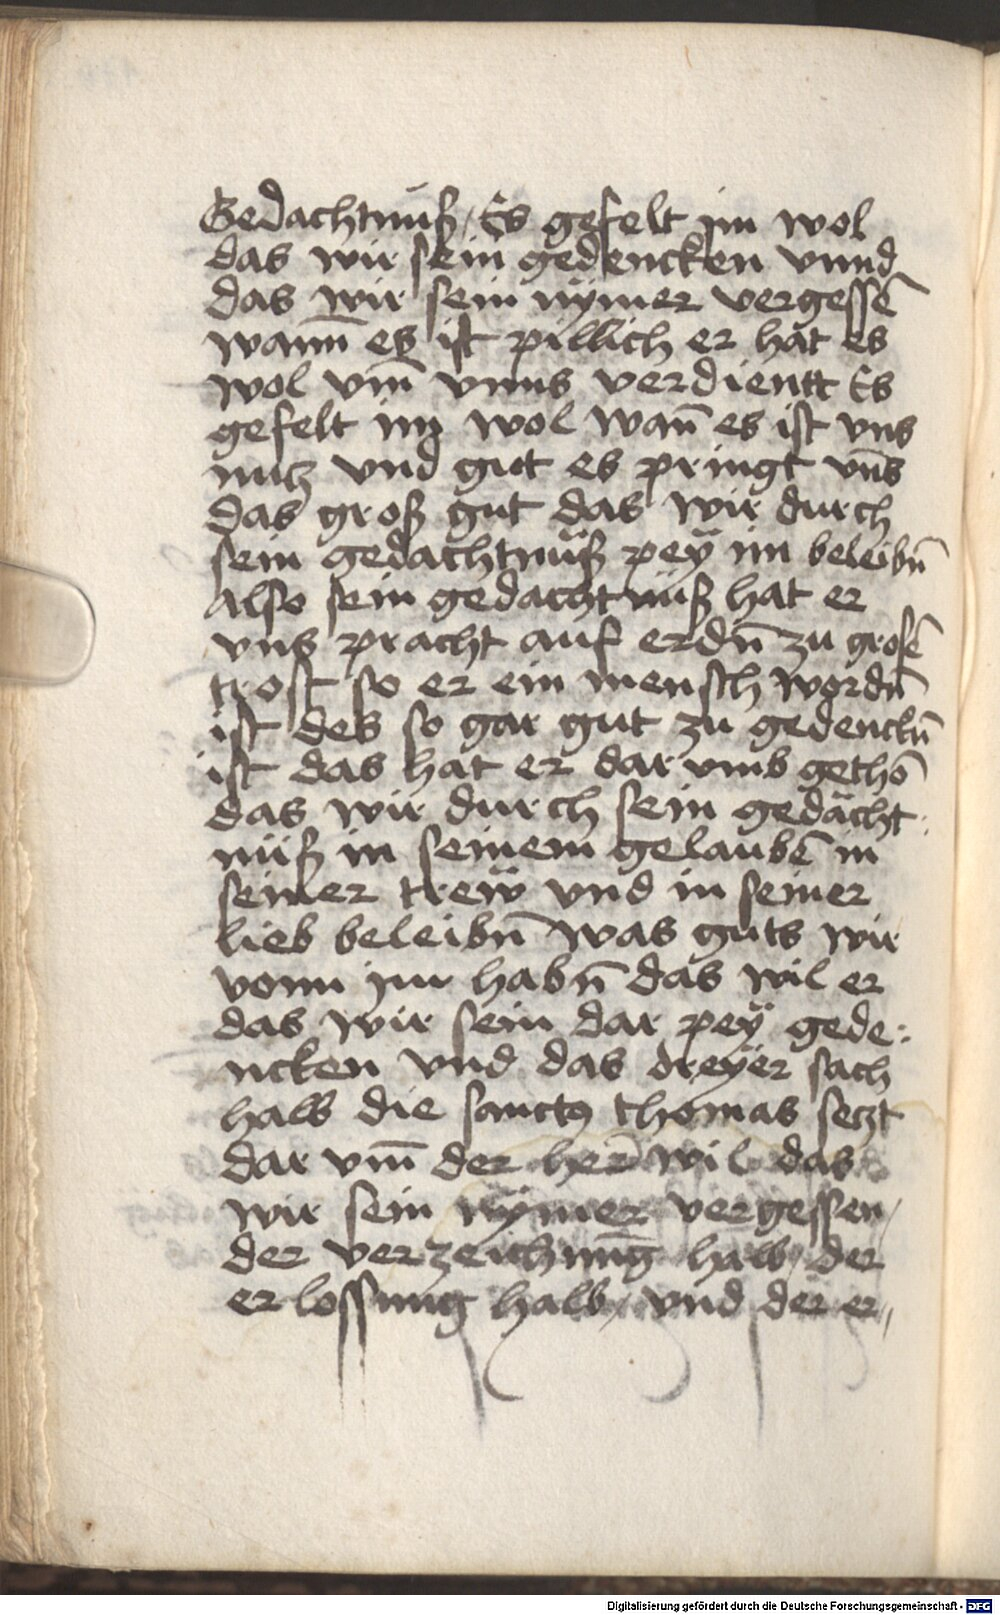 Gedachtnuß / Es gefelt im wol
das wir sein gedencken vnnd
das wir sein nÿmer vergessē
wann̄ es ist pillich er hat es
wol vm̄ vnns verdientt Es
gefelt im wol wan̄ es ist vns
nutz vnd gut es pringt vn̄s
das groß gut das wir durch
sein gedachtnüß peÿ im beleibn̄
Also sein gedachtnüß hat er
vns pracht auf erdn̄ zu grosē
trost so er ein mensch wordn̄
ist des so gar gut zu gedenckn̄
ist das hat er dar vmb gethō
das wir durch sein gedächt:
nüß in seinem gelaubē in
seiner treẅ vnd in seiner
lieb beleibn̄ was guts wir
vonn im habn̄ das wil er
das wir sein dar peÿ gede:
ncken vnd das dreÿer sach
halb die sanctꝰ thomas setzt
dar vm̄ der her̄ wil das
wir sein nÿmer vergessen /
der verzeichnūg halb / der
erlossung halb / vnd der er„
Digitalisierung gefördert durch die Deutsche Forschungsgemeinschaft - DFG